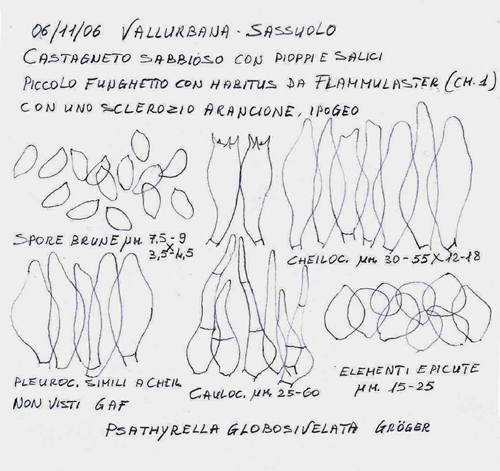 06/11/06 VALLURBANA - SASSUOLO
CASTAGNETO SABBIOSO CON PIOPPI E SALICI
PICCOLO FUNGHETTO CON HABITUS DA FLAMMULASTER (CH.1)
CON UNO SCLEROZIO ARANCIONE, IPOGEO
SPORE BRUNE µM. 7,5-9
X
3,5-4,5
CHEILOC. µM. 30-55 X 12-18
PLEUROC. SIMILI A CHEIL
NON VISTI GAF
CAULOC. µM. 25-60
ELEMENTI EPICUTE
µM. 15-25
PSATHYRELLA GLOBOSIVELATA GRÖGER